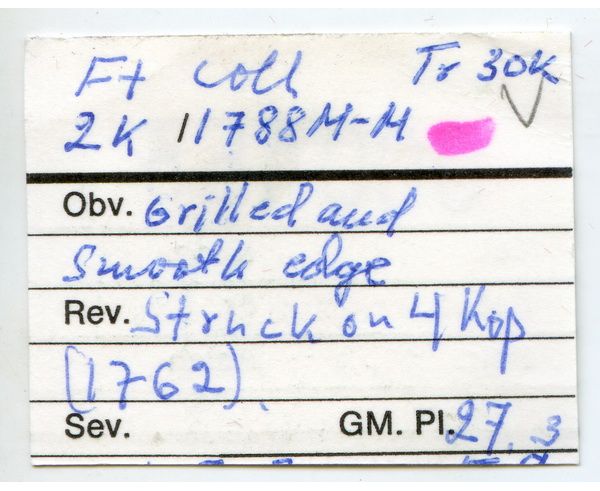 Ft Coll Tr 30K
2K 11788M-M
Obv. Grilled and
Smooth edge
Rev. Struck on 4 Kop
(1762).
Sev. GM. Pl. 27, 3